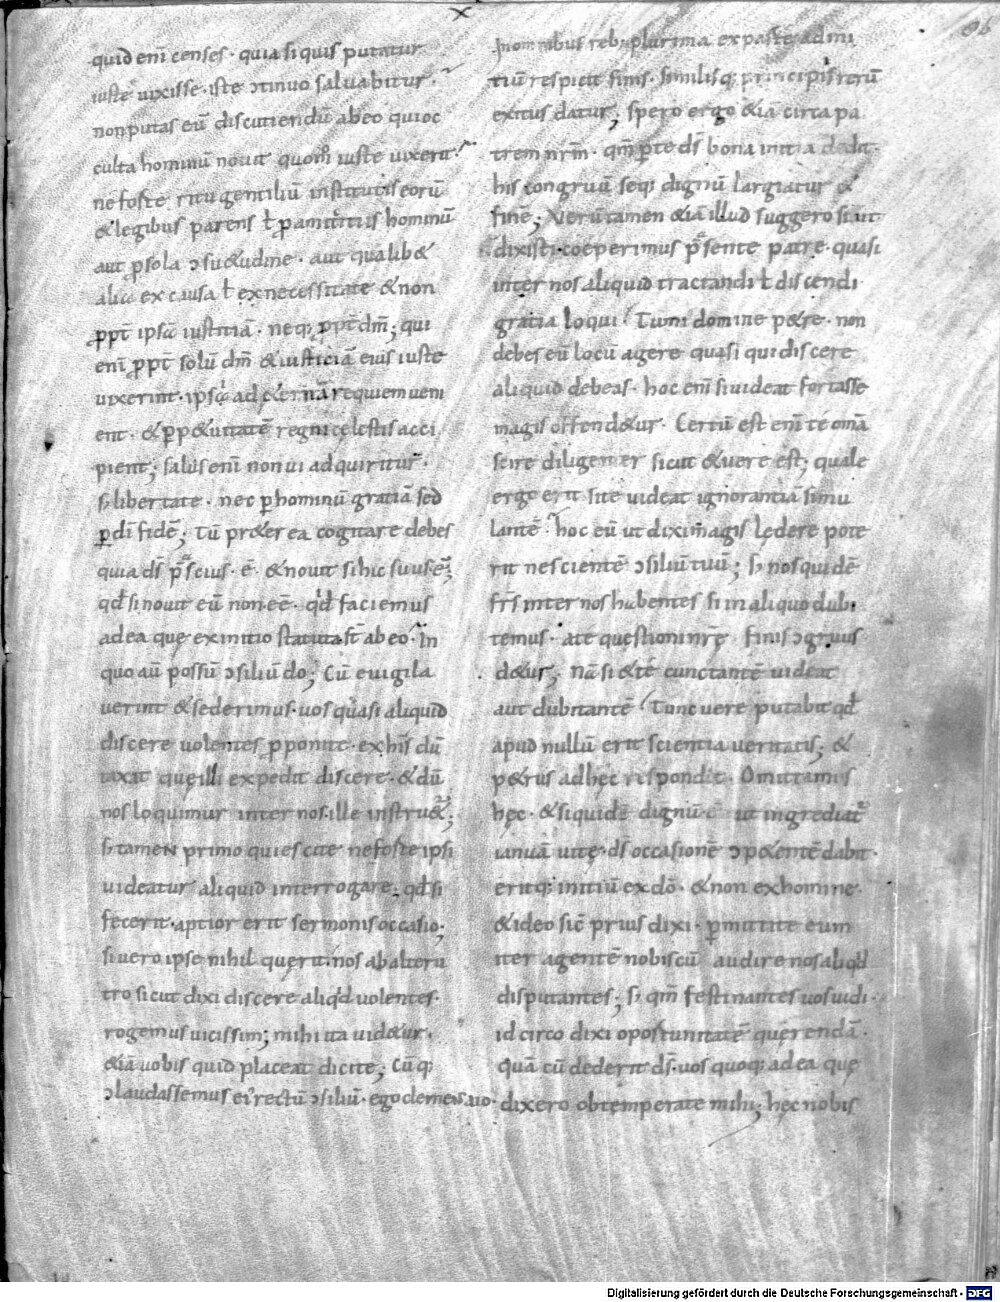 quid enī censes · quia si quis putatur
iuste uixisse · iste ↄtinuo saluabitur ·
non putas eū discutiendū ab eo qui oc
culta hominū nouit quom̄ iuste uixerit?
ne forte ritu gentiliū institutis eorū
& legibus parens ł p̱amititiis hominū
aut p̱ sola ↄsu&udine · aut qualib&
alia ex causa ł ex necessitate & non
ꝓpt̄ ipsā iustitiā · neq; ꝓpt̄ dm̄; qui
enī ꝓpt̄ solū dm̄ & iusticiā eius iuste
uixerint · ipsi ad &ernā requiem ueni
ent · & ꝑp&uitatē regni cęlestis acci
pient; salus enī non ui adquiritur ·
s; libertate · nec ꝑ hominū gratiā sed
ꝑ dī fidē; Tū pr&erea cogitare debes
quia ds̄ p̄scius · ē · & nouit si hic suus ē;
qd̄ si nouit eū non eē · qd̄ faciemus
ad ea quę ex initio statuta st̄ ab eo · In
quo aū possū ↄsiliū do; Cū euigila
uerint & sederimus · uos quasi aliquid
discere uolentes ꝓponite · ex his dū
taxat quę illi expedit discere · & dū
nos loquimur inter nos · ille instru&;
s; tamen primo quiescite ne forte ipsi
uideatur aliquid interrogare · qd̄ si
fecerit · aptior erit sermonis occasio;
si uero ipse nihil quęrit · nos ab alteru
tro sicut dixi discere aliqd uolentes ·
rogemus uicissim; mihi ita uid&ur ·
&iā uobis quid placeat dicite; Cūq;
ↄlaudassemus ei rectū ↄsiliū · ego clemens aio ·
In omnibus reb; plurima ex parte ad ini
tiū respicit finis · similisq; principiis rerū
exitus datur; spero ergo &iā circa pa
trem nrm̄ · qm̄ ꝑ te ds̄ bona initia dedit ·
his congruū seq; dignū largiatur &
finē; Verūtamen &iā illud suggero si ut
dixisti · coeperimus p̄sente patre · quasi
inter nos aliquid tractandi ł discendi ·
gratia loqui? Tu mi domine p&re · non
debes eū locū agere quasi qui discere
aliquid debeas · hoc enī si uideat fortasse
magis offend&ur · Certū est enī te omā
scire diligenter sicut & uere est; quale
ergo erit si te uideat ignorantiā simu
lantē? hoc eū ut dixi magis lędere pote
rit nescientē ↄsiliū tuū; s; nos quidē
frs̄ inter nos habentes si in aliquo dubi
temus · a te questioni nrę̄ finis ↄgruus
d&ur; nā si & te cunctantē uideat
aut dubitantē? Tunc uere putabit qd̄
apud nullū erit scientia ueritatis; &
p&rus ad hęc respondit · Omittamus
hęc · & siquidē dignū ē ut ingrediat̄
ianuā uitę · ds̄ occasionē ↄp&entē dabit ·
eritq; initiū ex dō · & non ex homine ·
& ideo sic̄ prius dixi · ꝑmittite eum
iter agentē nobiscū audire nos aliqd
disputantes; s; qm̄ festinantes uos uidi ·
id circo dixi oportunitatē querendā ·
quā cū dederit ds̄ · uos quoq; ad ea quę
dixero obtemperate mihi; hęc nobis
Digitalisierung gefördert durch die Deutsche Forschungsgemeinschaft · DFG